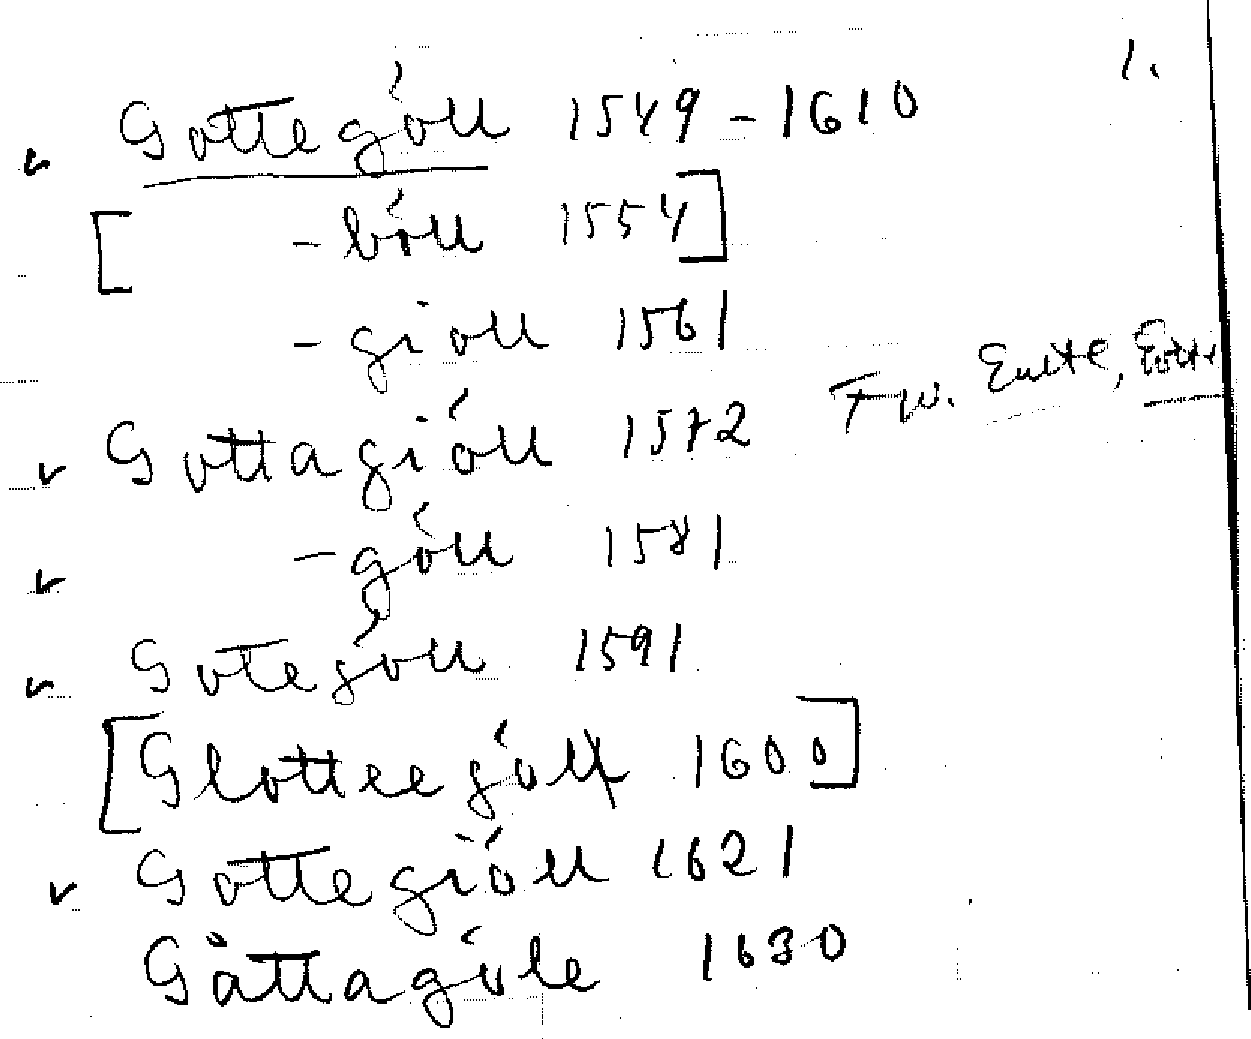 1.
Gottególl 1549-1610
[ -bóll 1554]
-gioll 1561
Gottagióll 1572
-góll 1581
Gotególl 1591
[Glotteególl 1600]
Gottegióll 1621
Gåttagóle 1630